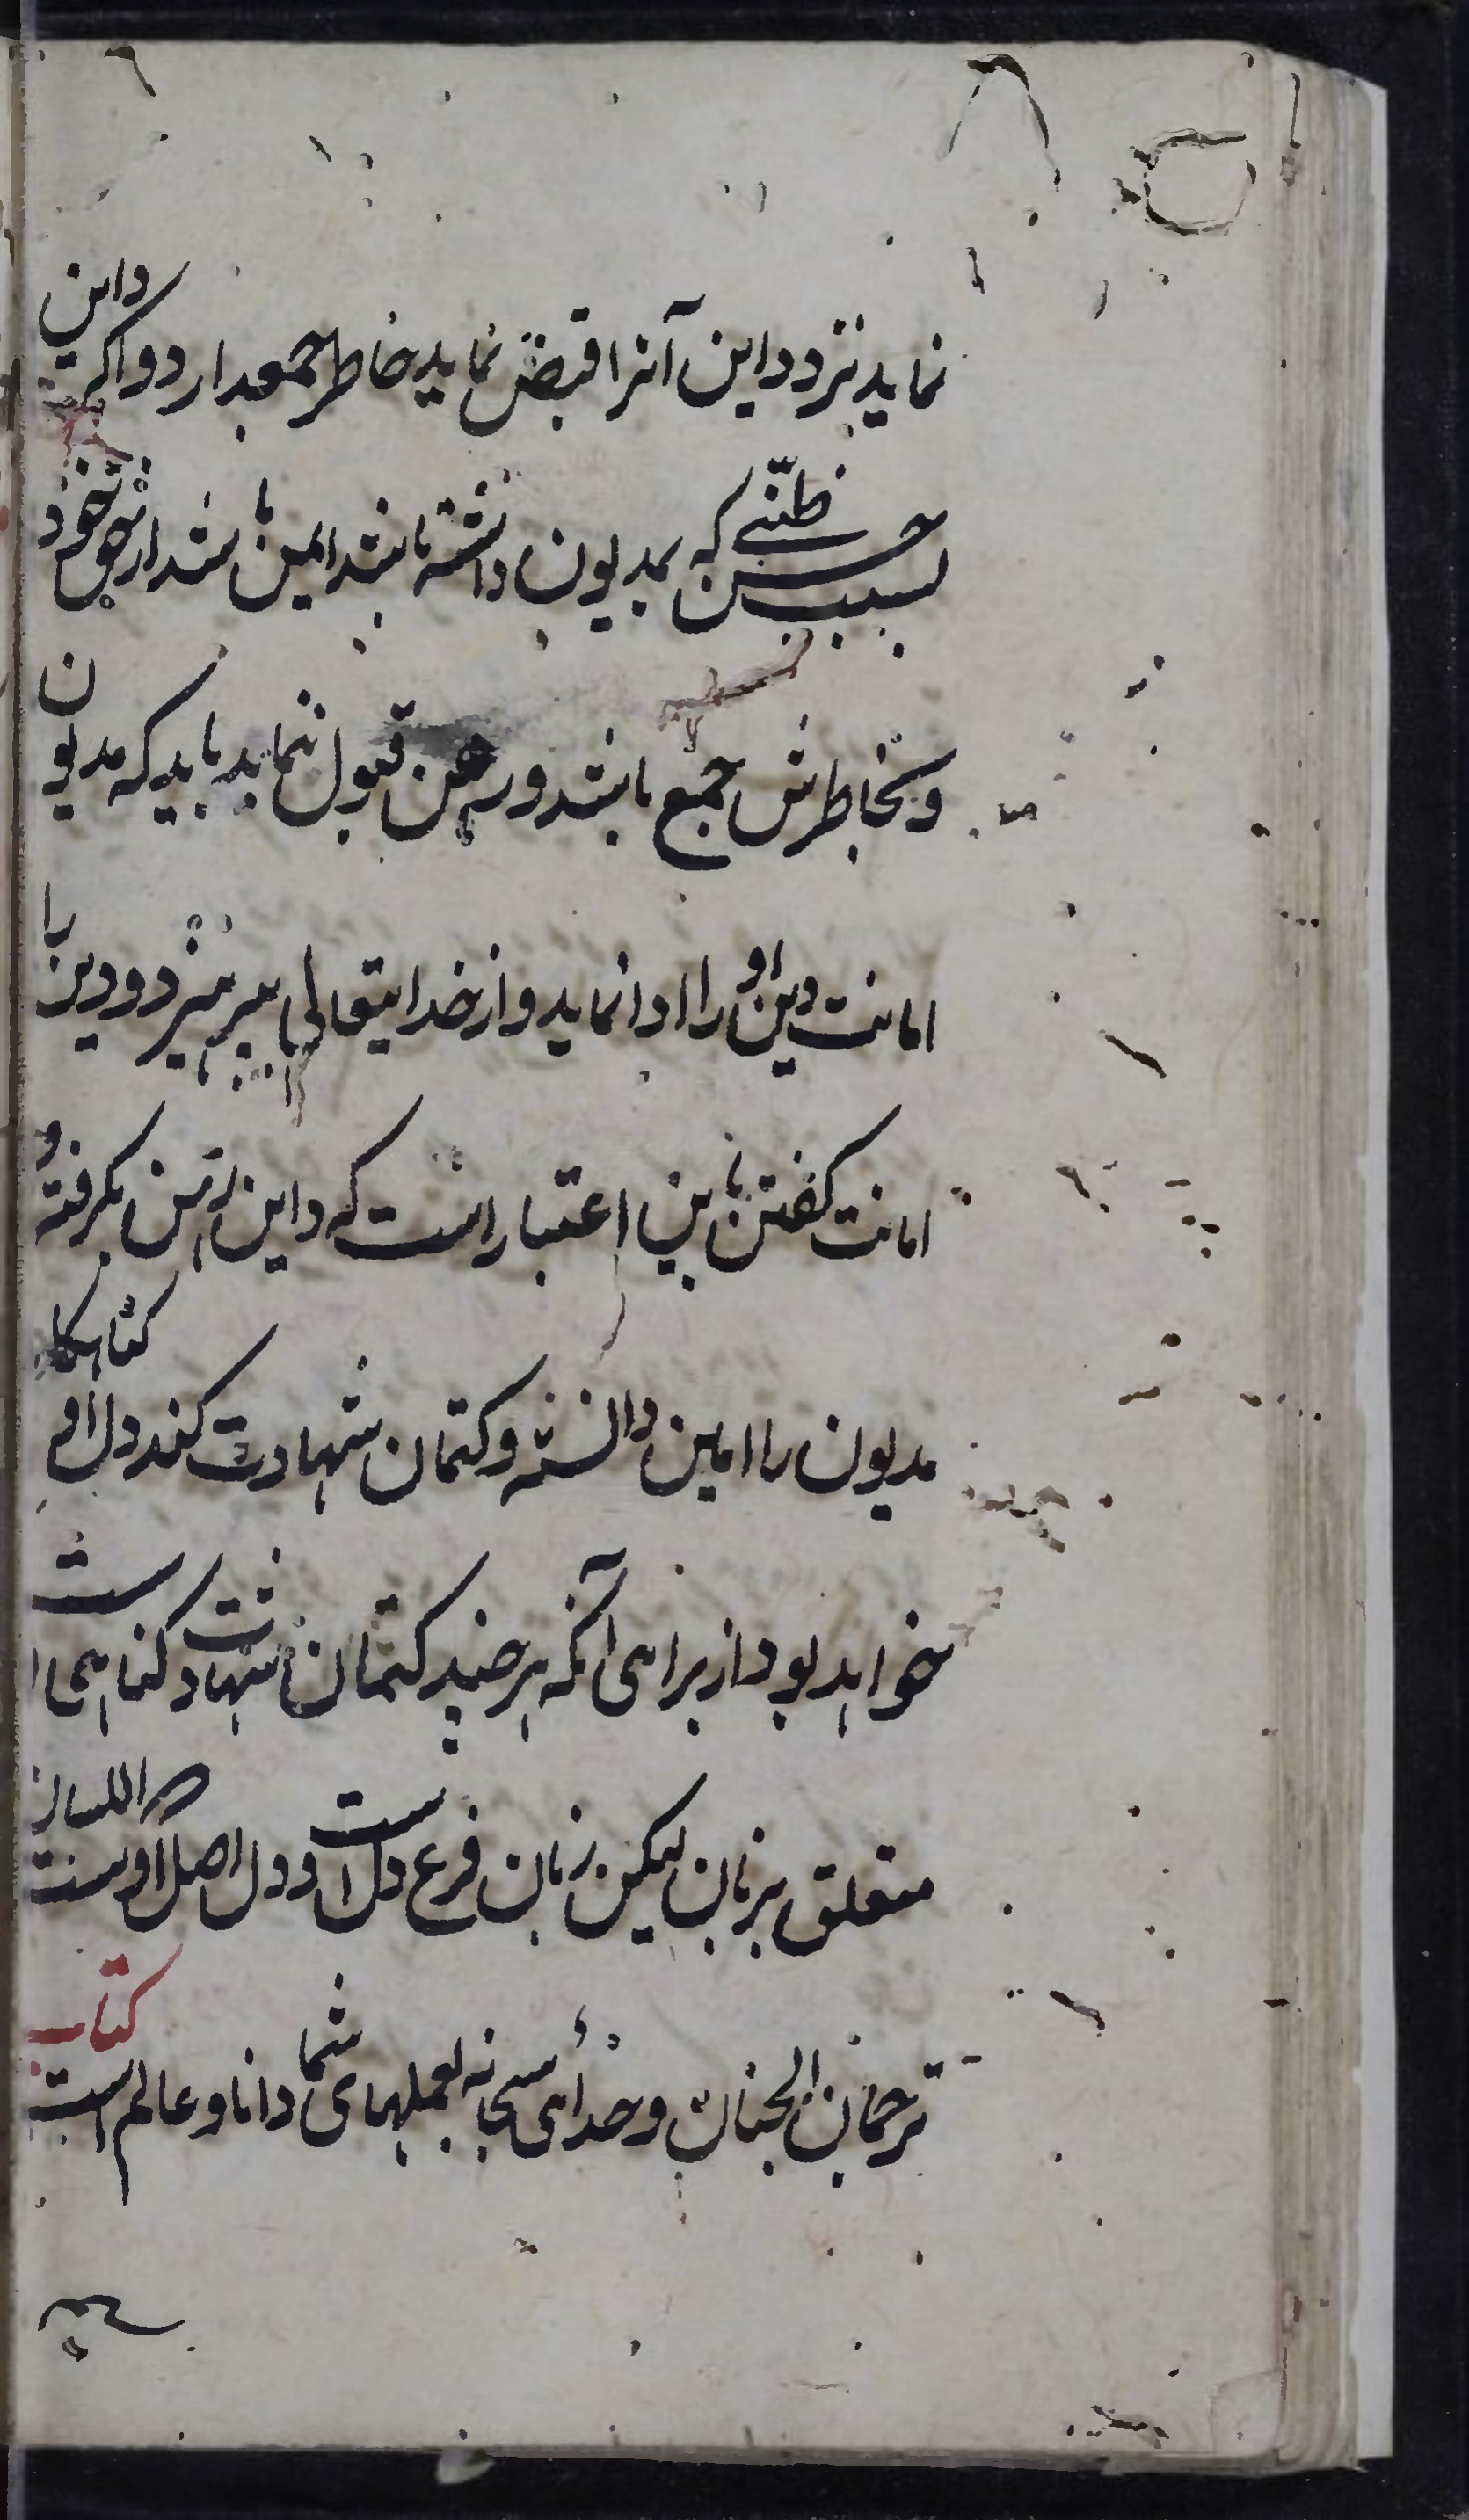 نماید نزد داین آنرا قبض نماید خاطر جمعدارد و اگر داین
بسبب حسن ظنّی که بمدیون داشته باشد ایمن باشد از حق خود
و بخاطرش جمع باشد و رهن قبول ننماید باید که مدیون
امانت و دین او را ادا نماید و از خدایتعالی بپرهیزد و دین را
امانت کفتن باین اعتبار است که داین رهن نکرفته و
مدیون را امین دانسته و کتمان شهادت کند دل او کناهکار
خواهد بود از برای آنکه هرچند کتمان شهادت کناهی است
متعلق بزبان لیکن زبان فرع دل است و دل اصل اوست اللسان
ترجمان الجنان و خدای سبحانه بعملهای شما دانا و عالم است کتاب